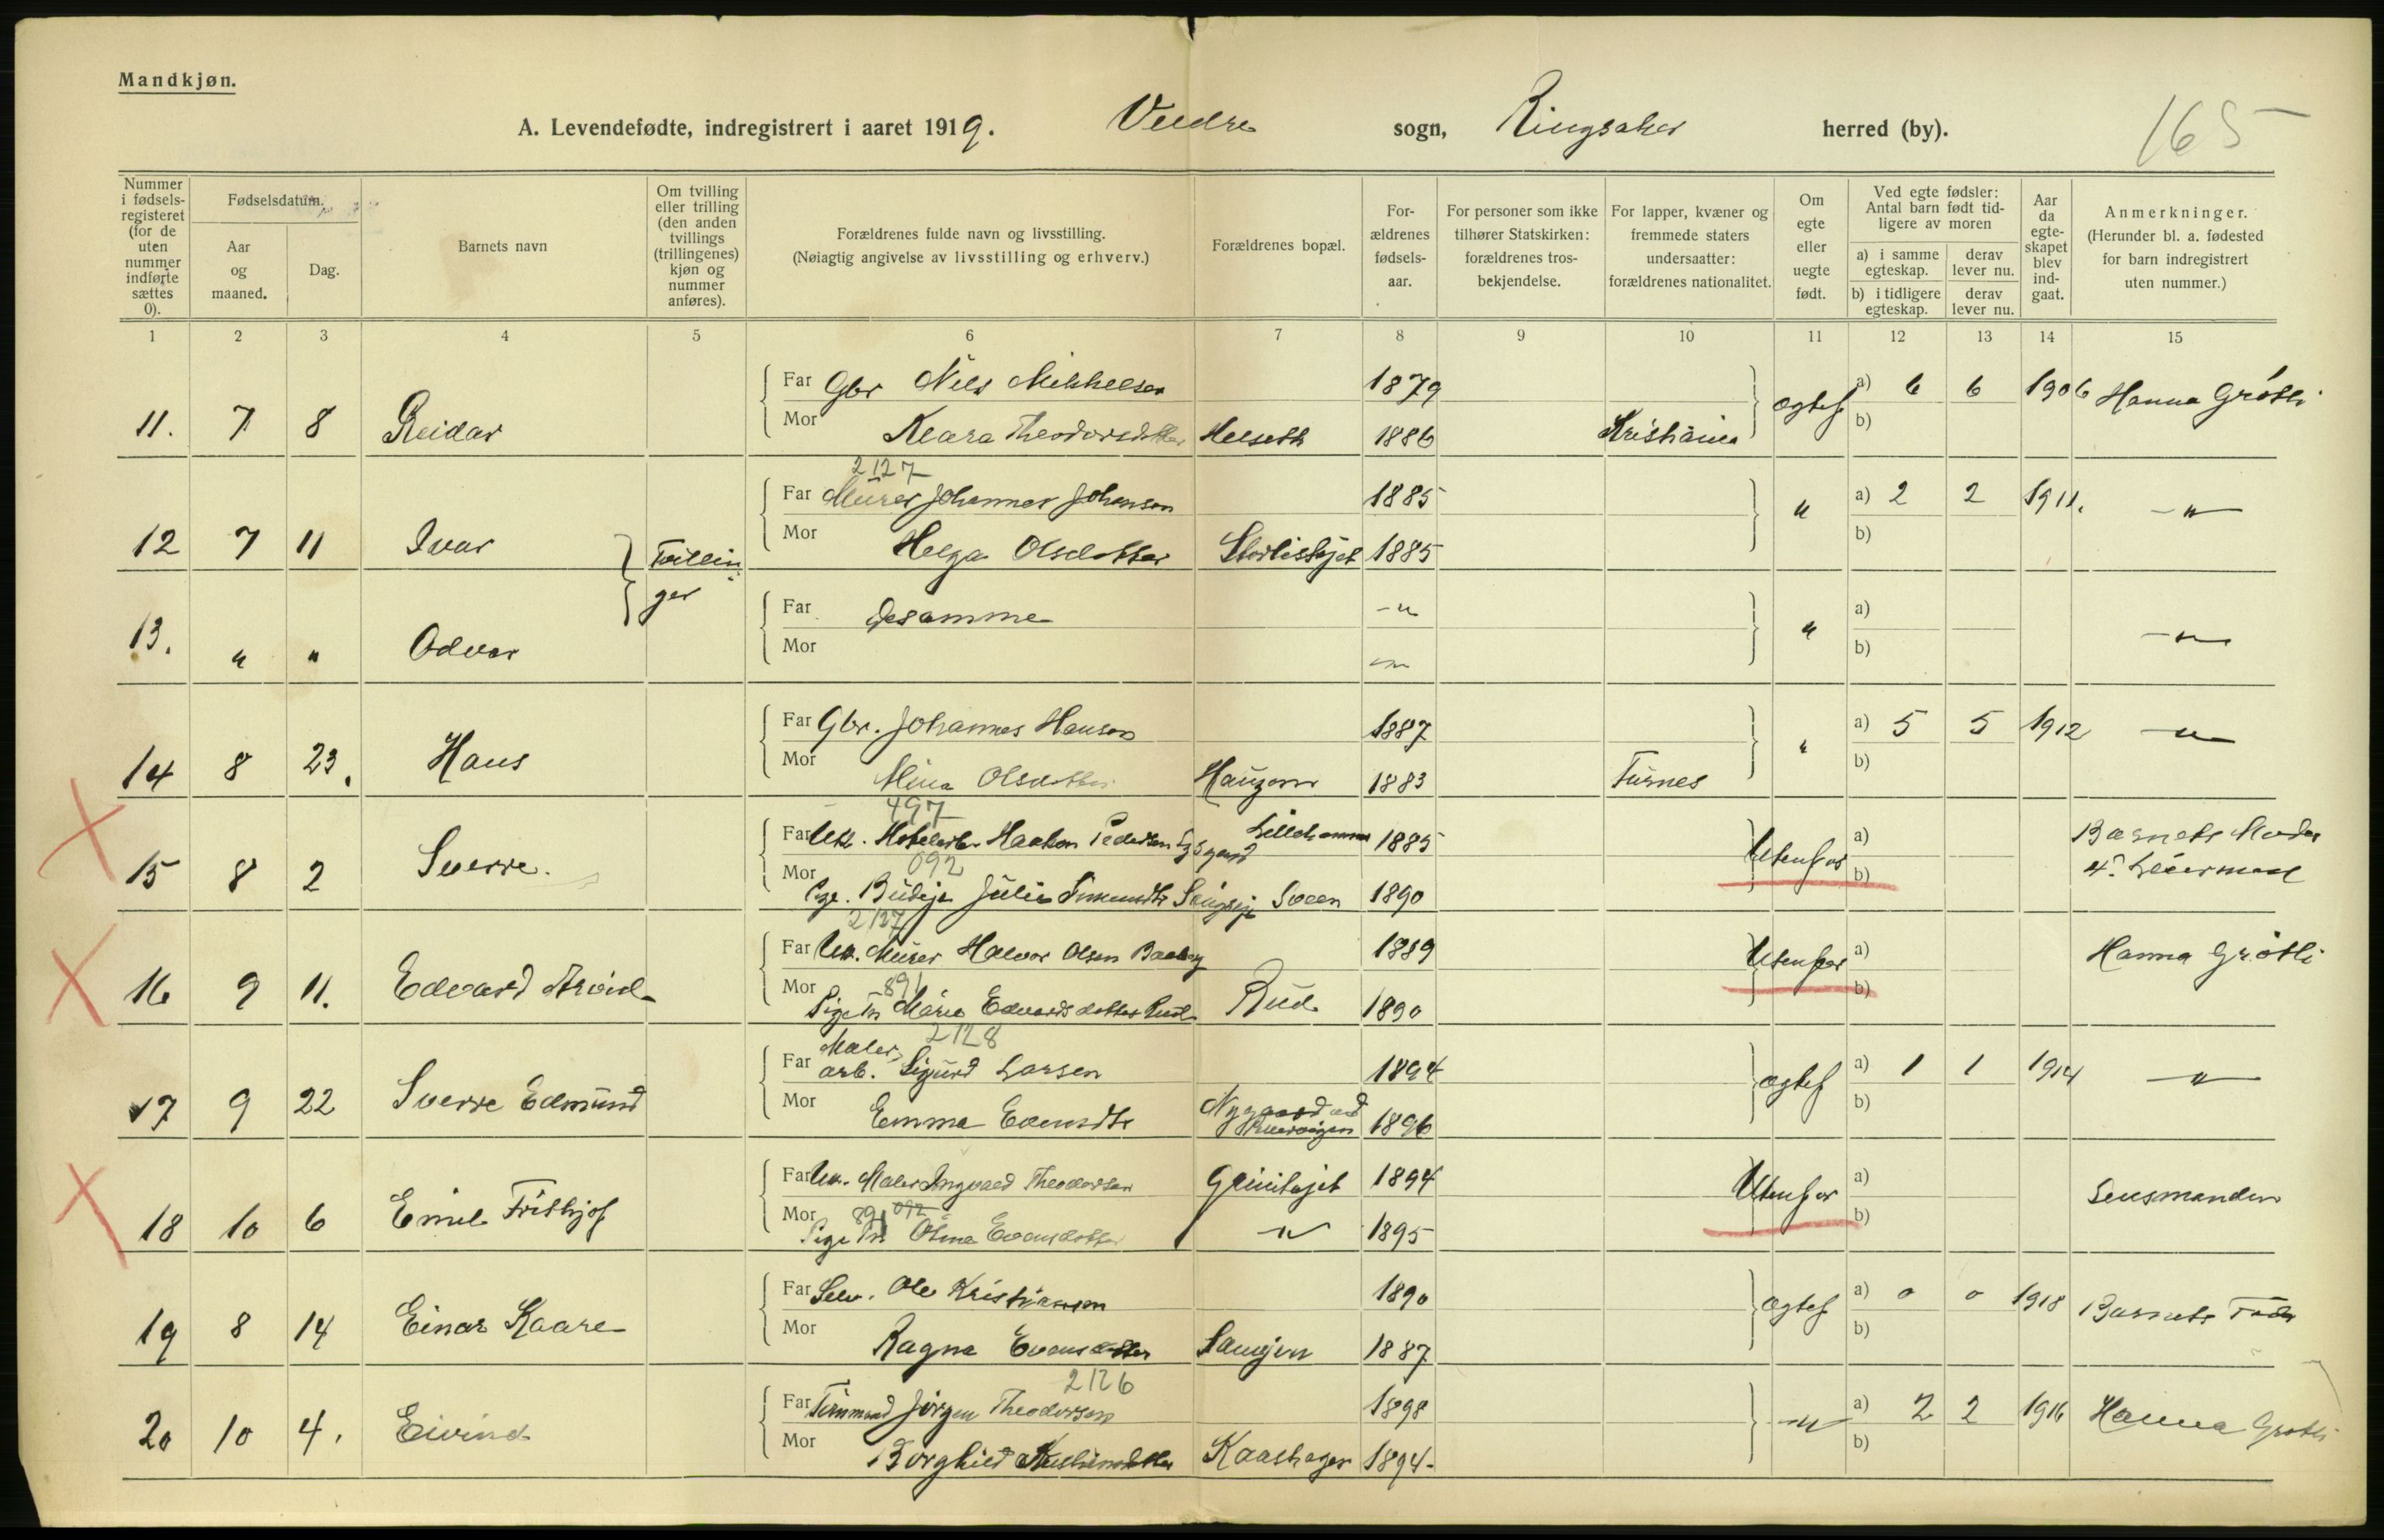 Mandkjøn.
A. Levendefødte, indregistrert i aaret 1919. Veldre sogn, Ringsaker herred (by). 165
Nummer i fødsels-registeret (for de uten nummer indførte sættes 0).
Fødselsdatum.
Aar og maaned.
Dag.
Barnets navn
Om tvilling eller trilling (den anden tvillings (trillingenes) kjøn og nummer anføres).
Forældrenes fulde navn og livsstilling.
(Nøiagtig angivelse av livsstilling og erhverv.)
Forældrenes bopæl.
For-ældrenes fødsels-aar.
For personer som ikke tilhører Statskirken: forældrenes tros-bekjendelse.
For lapper, kvæner og fremmede staters undersaatter: forældrenes nationalitet.
Om egte eller uegte født.
Ved egte fødsler: Antal barn født tid-ligere av moren
a) i samme egteskap. derav lever nu.
b) i tidligere egteskap. derav lever nu.
Aar da egte-skapet blev ind-gaat.
Anmerkninger.
(Herunder bl. a. fødested for barn indregistrert uten nummer.)
1 2 3 4 5 6 7 8 9 10 11 12 13 14 15
Far Gbr Nils Mikkelsen 1879 a) 6 6 1906 Hanna Grøtli
11. 7 8 Reidar Mor Klara Theodorsdatter Helseth 1886 Kristiania ægtef b)
2127
Far Murer Johannes Johansen 1885 " a) 2 2 1911. — " —
12 7 11 Ivar Tvillin- Mor Helga Olsdatter 1885 b)
ger
Far Desamme — " a)
13. " " Odvar Mor — " — " b) — " —
Far Gbr. Johannes Hansen 1887 a) 5 5 1912 — " —
14 8 23. Hans Mor Mina Olsdatter Haugom 1883 Furnes " b)
497
Far Uk. Haakon Pedersen Lillehammer 1885 Utenfor a) Barnets Moder
092
15 8 2 Sverre. Mor Pige. Budeje Julie Sveen 1890 b)
2137
Far Uk. Murer Halvor Olsen 1889 Utenfor a) Hanna Grøtli
891
16 9 11. Edvard Arvid Mor Pige Tj. Marie Edvardsdatter Rud Rud 1890 b)
2128
Maler
Far arb. Sigurd Larsen 1894 ægtef a) 1 1 1914 — " —
17 9 22 Sverre Edmund Mor Emma Evensdtr Nygaard 1896 b)
Far Uk. Maler Ingvald Theodorsen 1894 Utenfor a) Lensmanden
891 092
18 10 6 Emil Frithjof Mor Pige Tj. Evensdatter — " — 1895 b)
Far Selv. Ole Kristiansen 1890 ægtef a) 0 0 1918 Barnets Fader
19 8 14 Einar Kaare Mor Ragna Evensdatter 1887 b)
2126
Far Jørgen Theodorsen 1898 — " — a) 2 2 1916 Hanna Grøtli
20 10 4. Eivind Mor Borghild Kristiansdatter Kaashagen 1894. b)